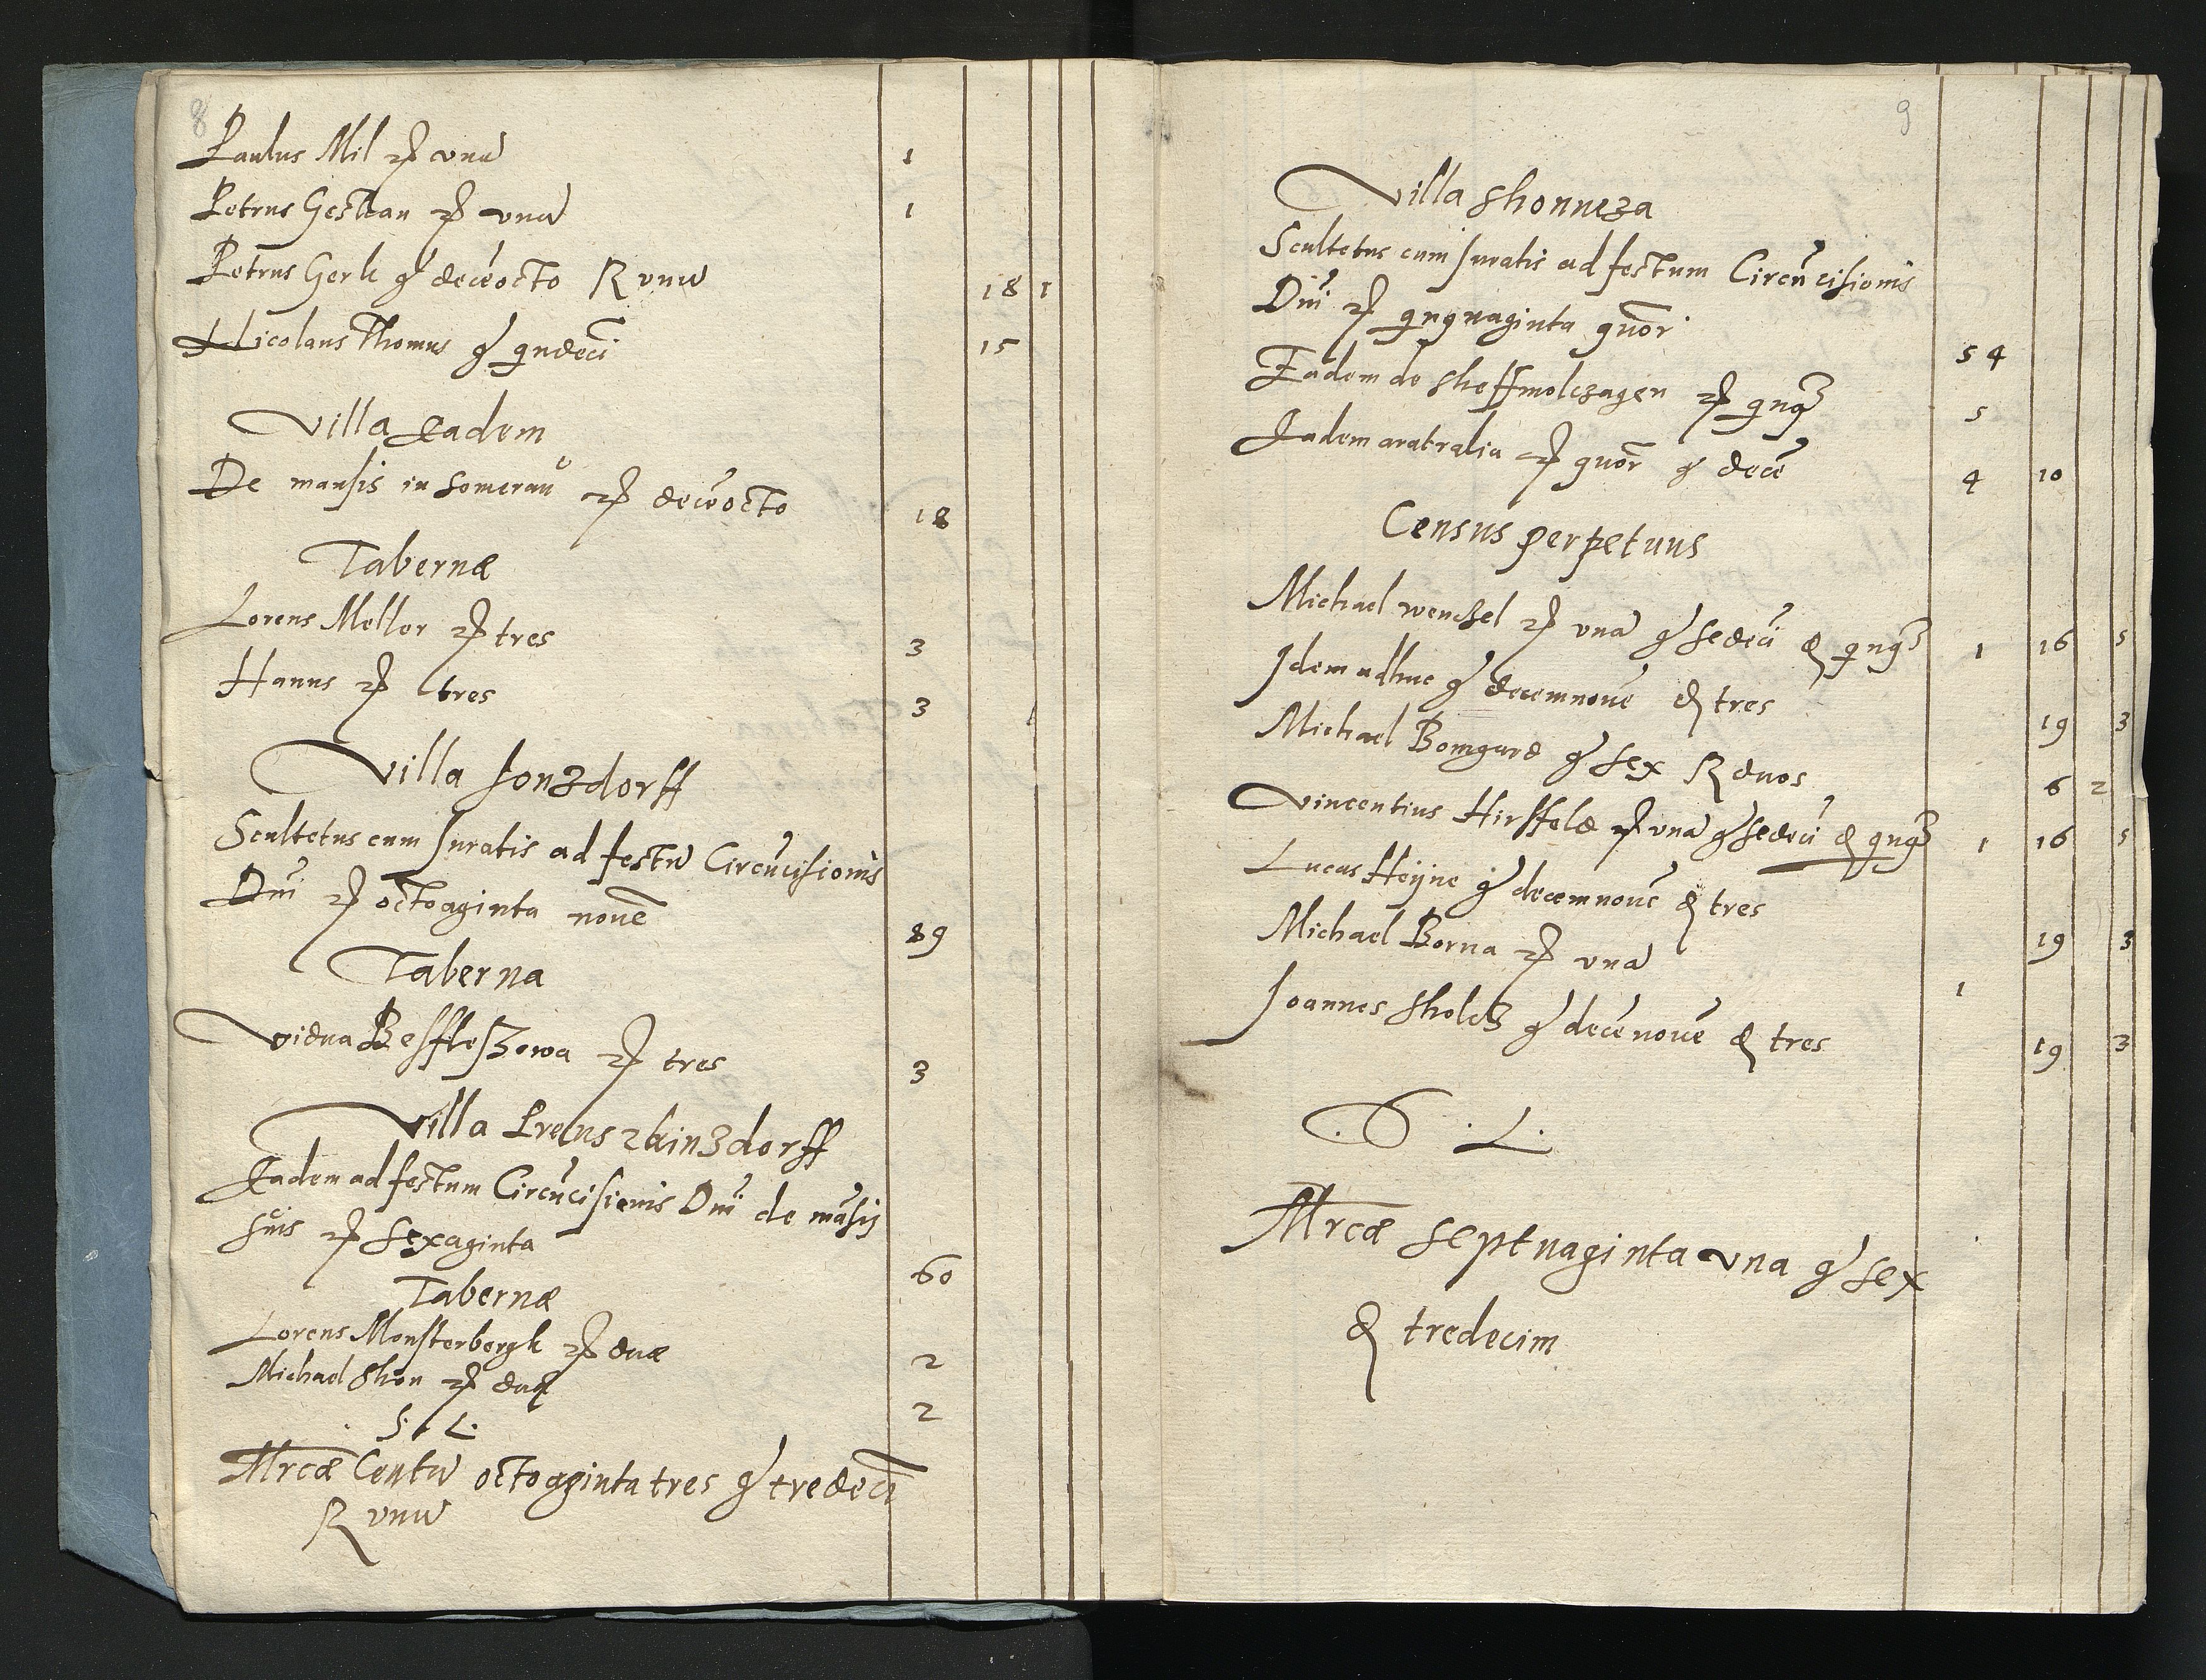 8
Paulus Mil ꝝ vnã 1
Petrus Gesthan ꝝ vnã 1
Petrus Gerh gͬ decẽocto ꝶ vnũ 18 1
Nicolaus Thomus gͬ qndecĩ 15
Villa Eadem
De mansis in Somerau ꝝ decẽocto 18
Tabernæ
Lorens Moller ꝝ tres 3
Hanns ꝝ tres 3
Villa Jonʒdorff
Scultetus cum Juratis ad festũ Circũcisionis
Dnĩ ꝝ octoaginta nouẽ 89
Taberna
Vidua ꝝ tres 3
Villa
Eadem ad festum Circũcisionis Dnĩ de mãsis
suis ꝝ sexaginta 60
Tabernæ
Lorens Monsterbergk ꝝ duæ 2
Michael Shon ꝝ duæ 2
S. L.
Mrcæ Centũ octogginta tres gͬ tredecĩ
ꝶ vnũ
9
Villa Shonneʒa
Scultetus cum Juratis ad festum Circũcisionis
Dnĩ ꝝ qnquaginta quõr 54
Eadem de Sheffmolcʒagen ꝝ qnqʒ 5
Eadem aratralia ꝝ quõr gͬ decẽ 4 10
Census perpetuus
Michael wenchel ꝝ vnã gͬ sedecĩ ₰ qnqʒ 1 16 5
Idem adhuc gͬ decemnouẽ ₰ tres 19 3
Michael Bomgard gͬ sex ꝶ duos 6 2
Vincentius Hirsfeld ꝝ vnã gͬ sedecĩ ₰ qnqʒ 1 16 5
Lucas Heÿne gͬ decemnouẽ ₰ tres 19 3
Michael Borna ꝝ vnã 1
Joannes Sholcʒ gͬ decẽnouẽ ₰ tres 19 3
S. L.
Mrcæ septuaginta vna gͬ sex
₰ tredecim